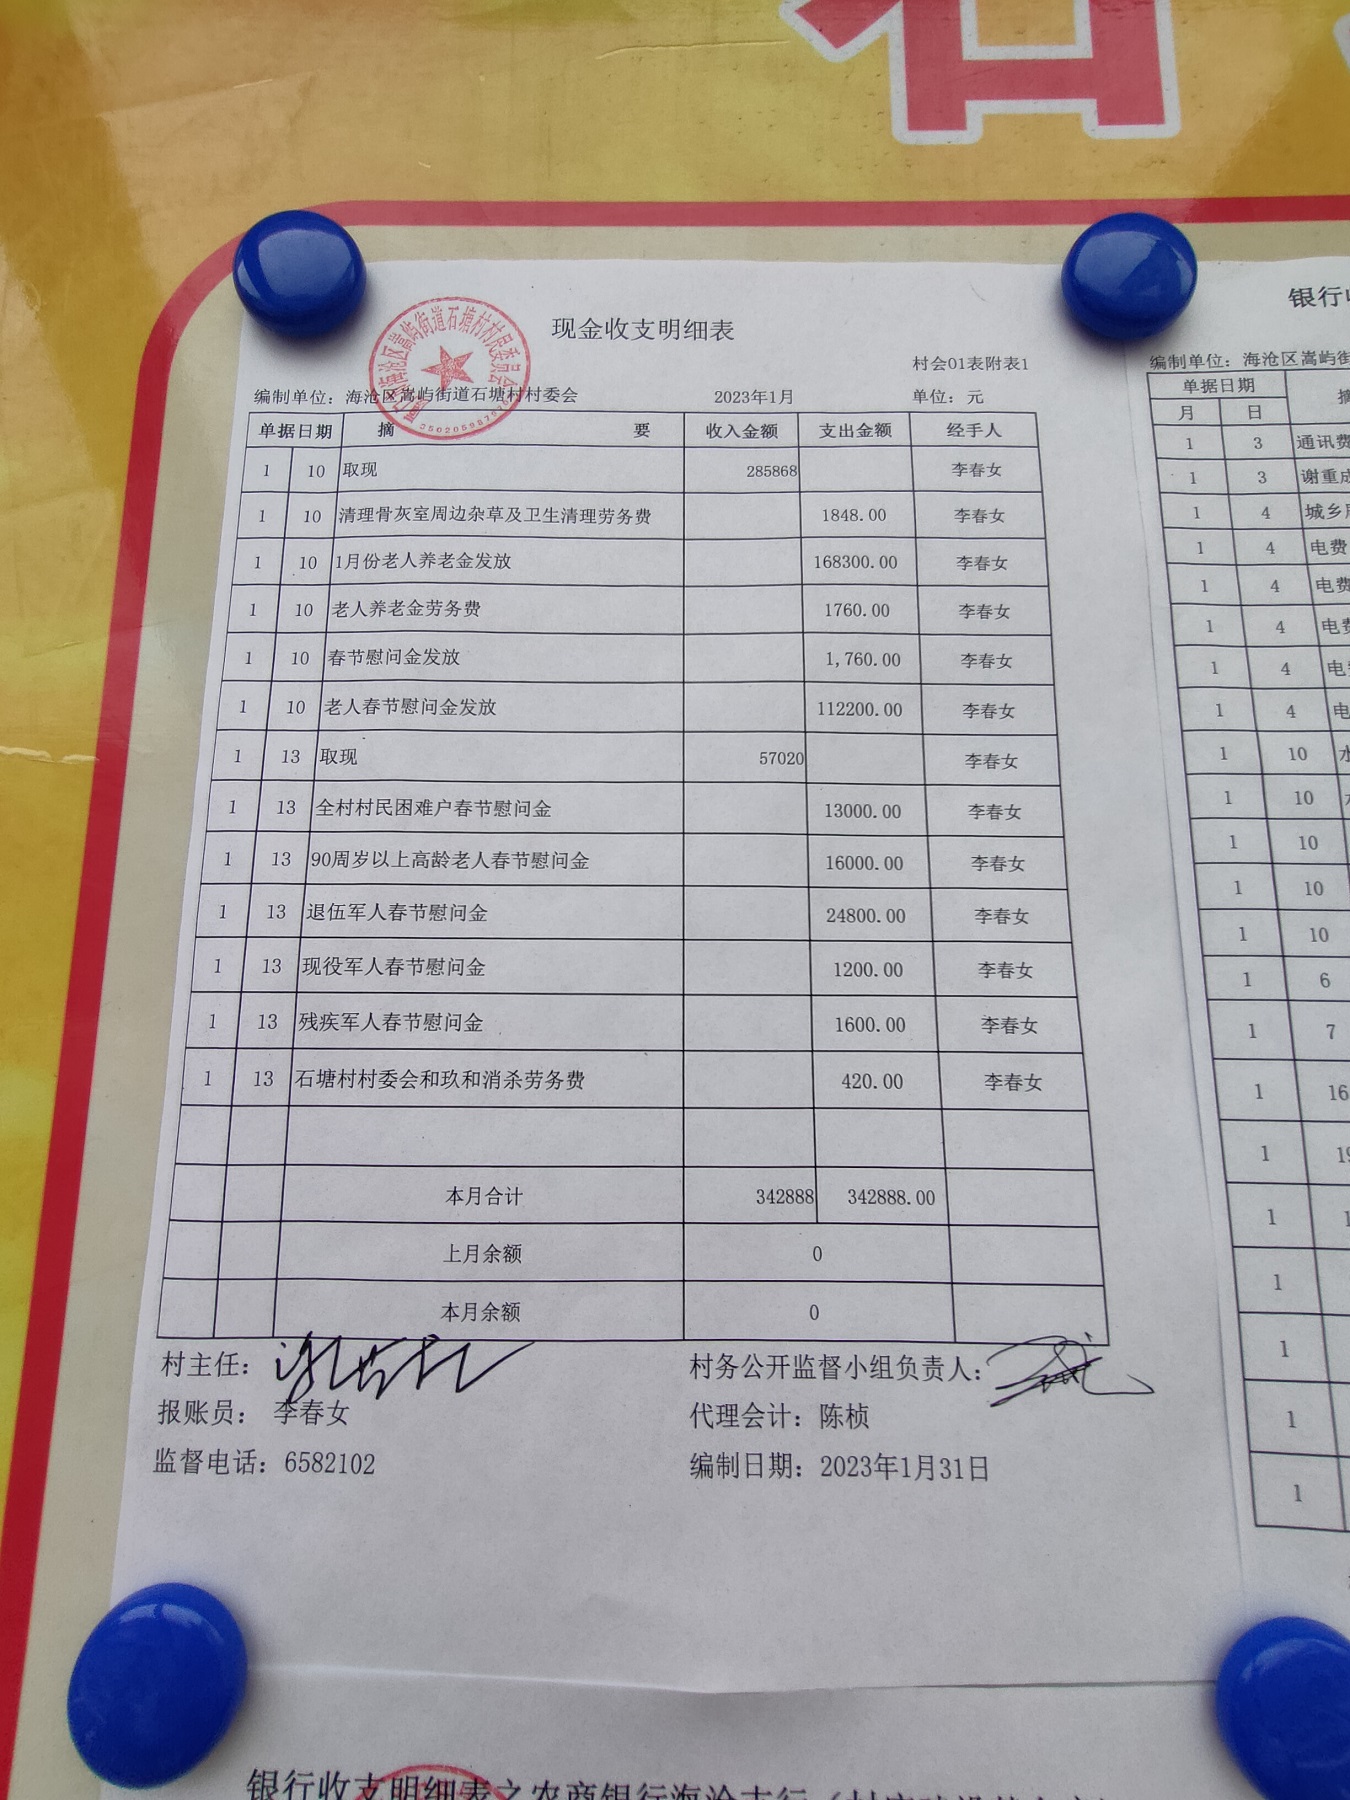 现金收支明细表
村会01表附表1
编制单位：海沧区嵩屿街道石塘村村委会 2023年1月 单位：元
单据日期 摘 要 收入金额 支出金额 经手人
1 10 取现 285868 李春女
1 10 清理骨灰室周边杂草及卫生清理劳务费 1848.00 李春女
1 10 1月份老人养老金发放 168300.00 李春女
1 10 老人养老金劳务费 1760.00 李春女
1 10 春节慰问金发放 1,760.00 李春女
1 10 老人春节慰问金发放 112200.00 李春女
1 13 取现 57020 李春女
1 13 全村村民困难户春节慰问金 13000.00 李春女
1 13 90周岁以上高龄老人春节慰问金 16000.00 李春女
1 13 退伍军人春节慰问金 24800.00 李春女
1 13 现役军人春节慰问金 1200.00 李春女
1 13 残疾军人春节慰问金 1600.00 李春女
1 13 石塘村村委会和玖和消杀劳务费 420.00 李春女
本月合计 342888 342888.00
上月余额 0
本月余额 0
村主任： 村务公开监督小组负责人：
报账员： 李春女 代理会计：陈桢
监督电话：6582102 编制日期：2023年1月31日
银行
编制单位：海沧区嵩屿街
单据日期
月 日
1 3 通讯费
1 3 谢重成
1 4 城乡
1 4 电费
1 4 电费
1 4 电费
1 4 电
1 4 电
1 10 水
1 10
1 10
1 10
1 10
1 6
1 7
1 16
1
1
1
1
1
1
银行收支明细表之农商银行海沧支行